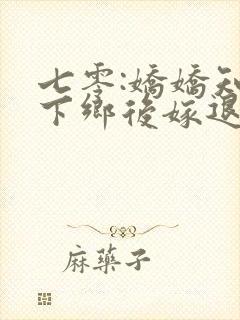 七零:嬌嬌知
下鄉後嫁退
麻藥子